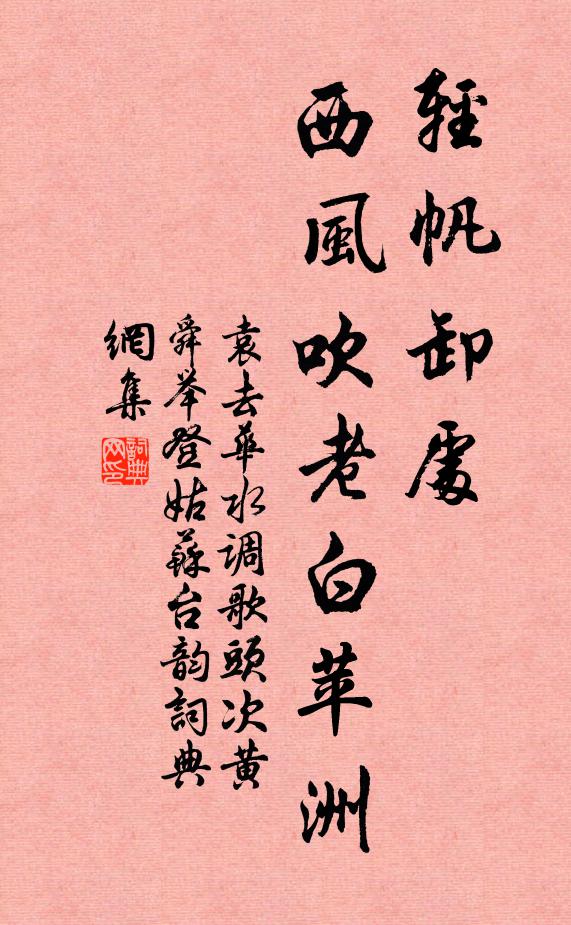 輕帆卸處
西風吹老白苹洲
袁去華水调歌頭次黄
舜举登姑蘇台韵詞典
網集
詞典
网印